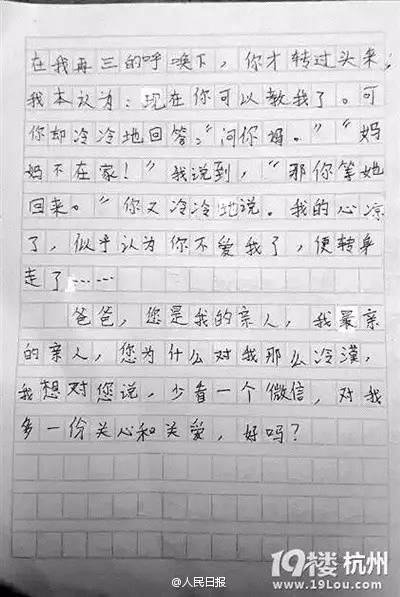 在我再三的呼唤下，你才转过头来，
我本认为：现在你可以教我了。可
你却冷冷地回答：“问你妈。”“妈
妈不在家！”我说到，“那你等她
回来。”你又冷冷地说。我的心凉
了，似乎认为你不爱我了，便转身
走了……
爸爸，您是我的亲人，我最亲
的亲人，您为什么对我那么冷漠，
我想对您说，少看一个微信，对我
多一份关心和关爱，好吗？
@人民日报
19楼 杭州
www.19Lou.com